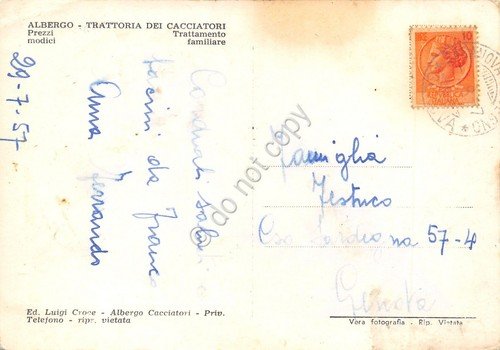 ALBERGO - TRATTORIA DEI CACCIATORI
Prezzi modici
Trattamento familiare
29-7-57
Cordiali saluti e
bacini da Franco
Anna Fernando
Famiglia
Corso Sardegna 57-4
Genova
10
do not copy
Ed. Luigi Croce - Albergo Cacciatori - Priv.
Telefono - ripr. vietata
Vera fotografia - Rip. Vietata